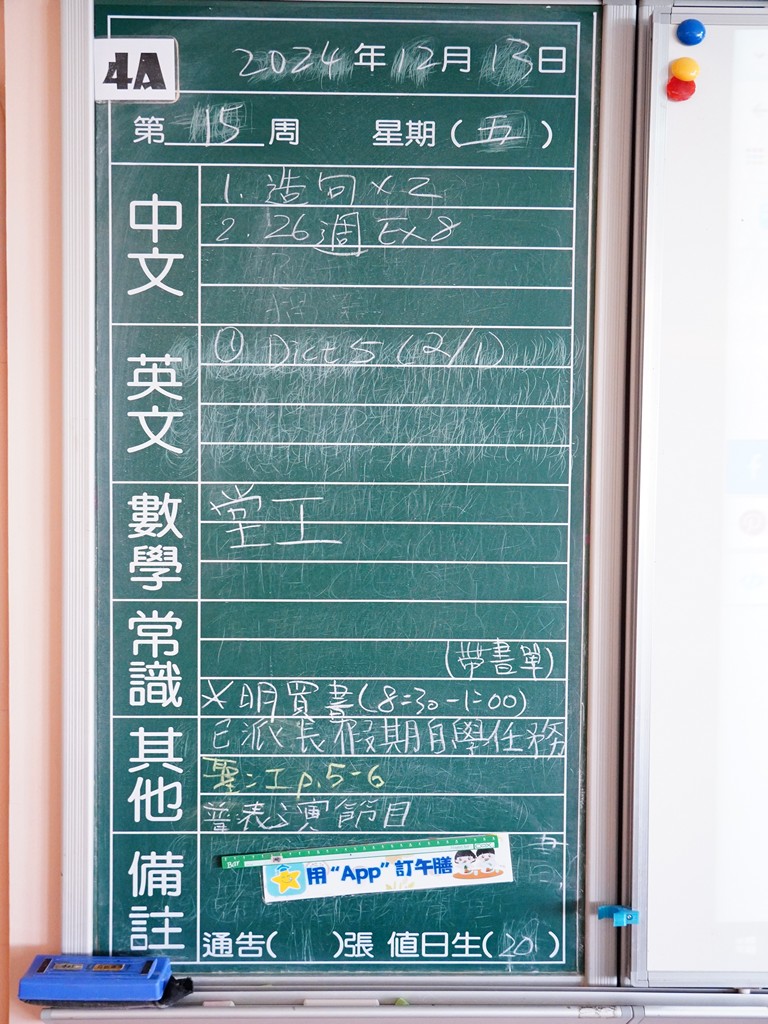 4A
2024年12月13日
第15周 星期(五)
中文
1. 造句 x 2
2. 26週 Ex 8
英文
① Dict 5 (2/1)
數學
堂工
常識
(帶書單)
※明買書(8:30-1:00)
其他
已派長假期自學任務
聖:工 p.5-6
普表演節目
備註
用“App”訂午膳
通告( )張 值日生(20)